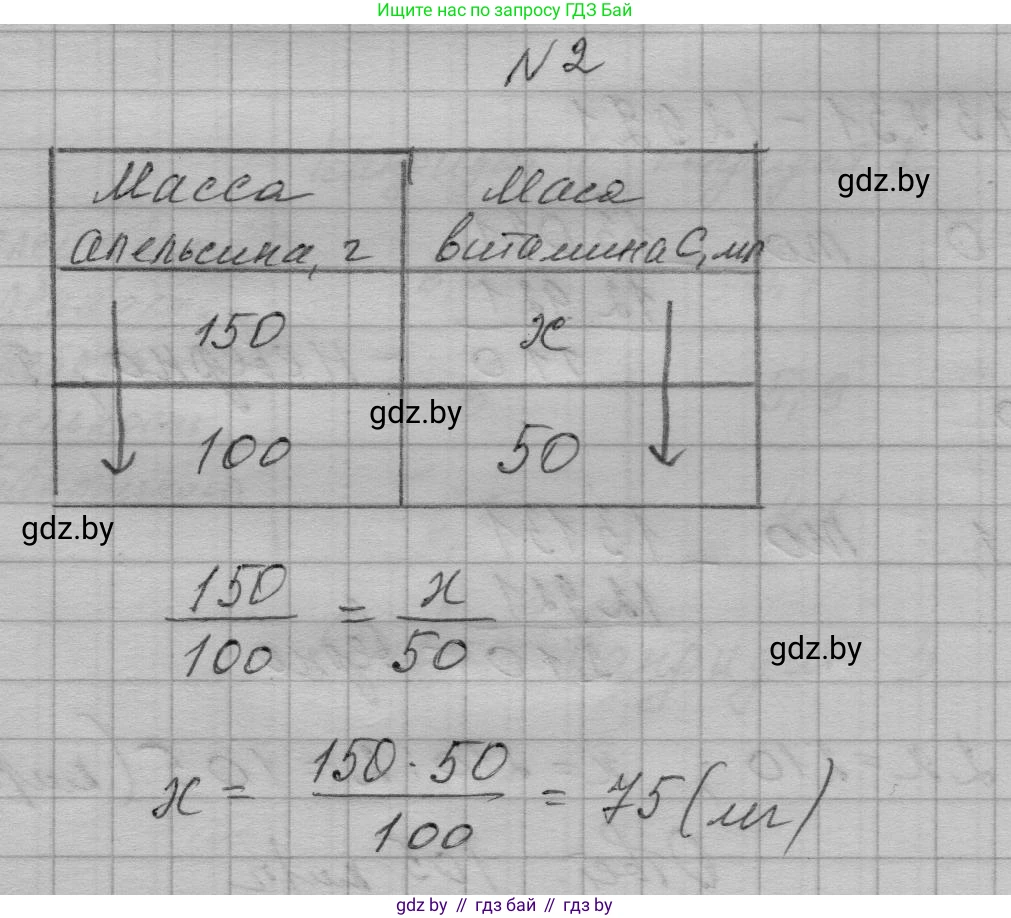 Ищите нас по запросу ГДЗ Бай
N 2
Масса Маса
апельсина, г витамина С, мг
gdz.by
150 x
gdz.by
100 50
gdz.by
150/100 = x/50
gdz.by
x = 150 · 50/100 = 75 (мг)
gdz.by // гдз бай // гдз by